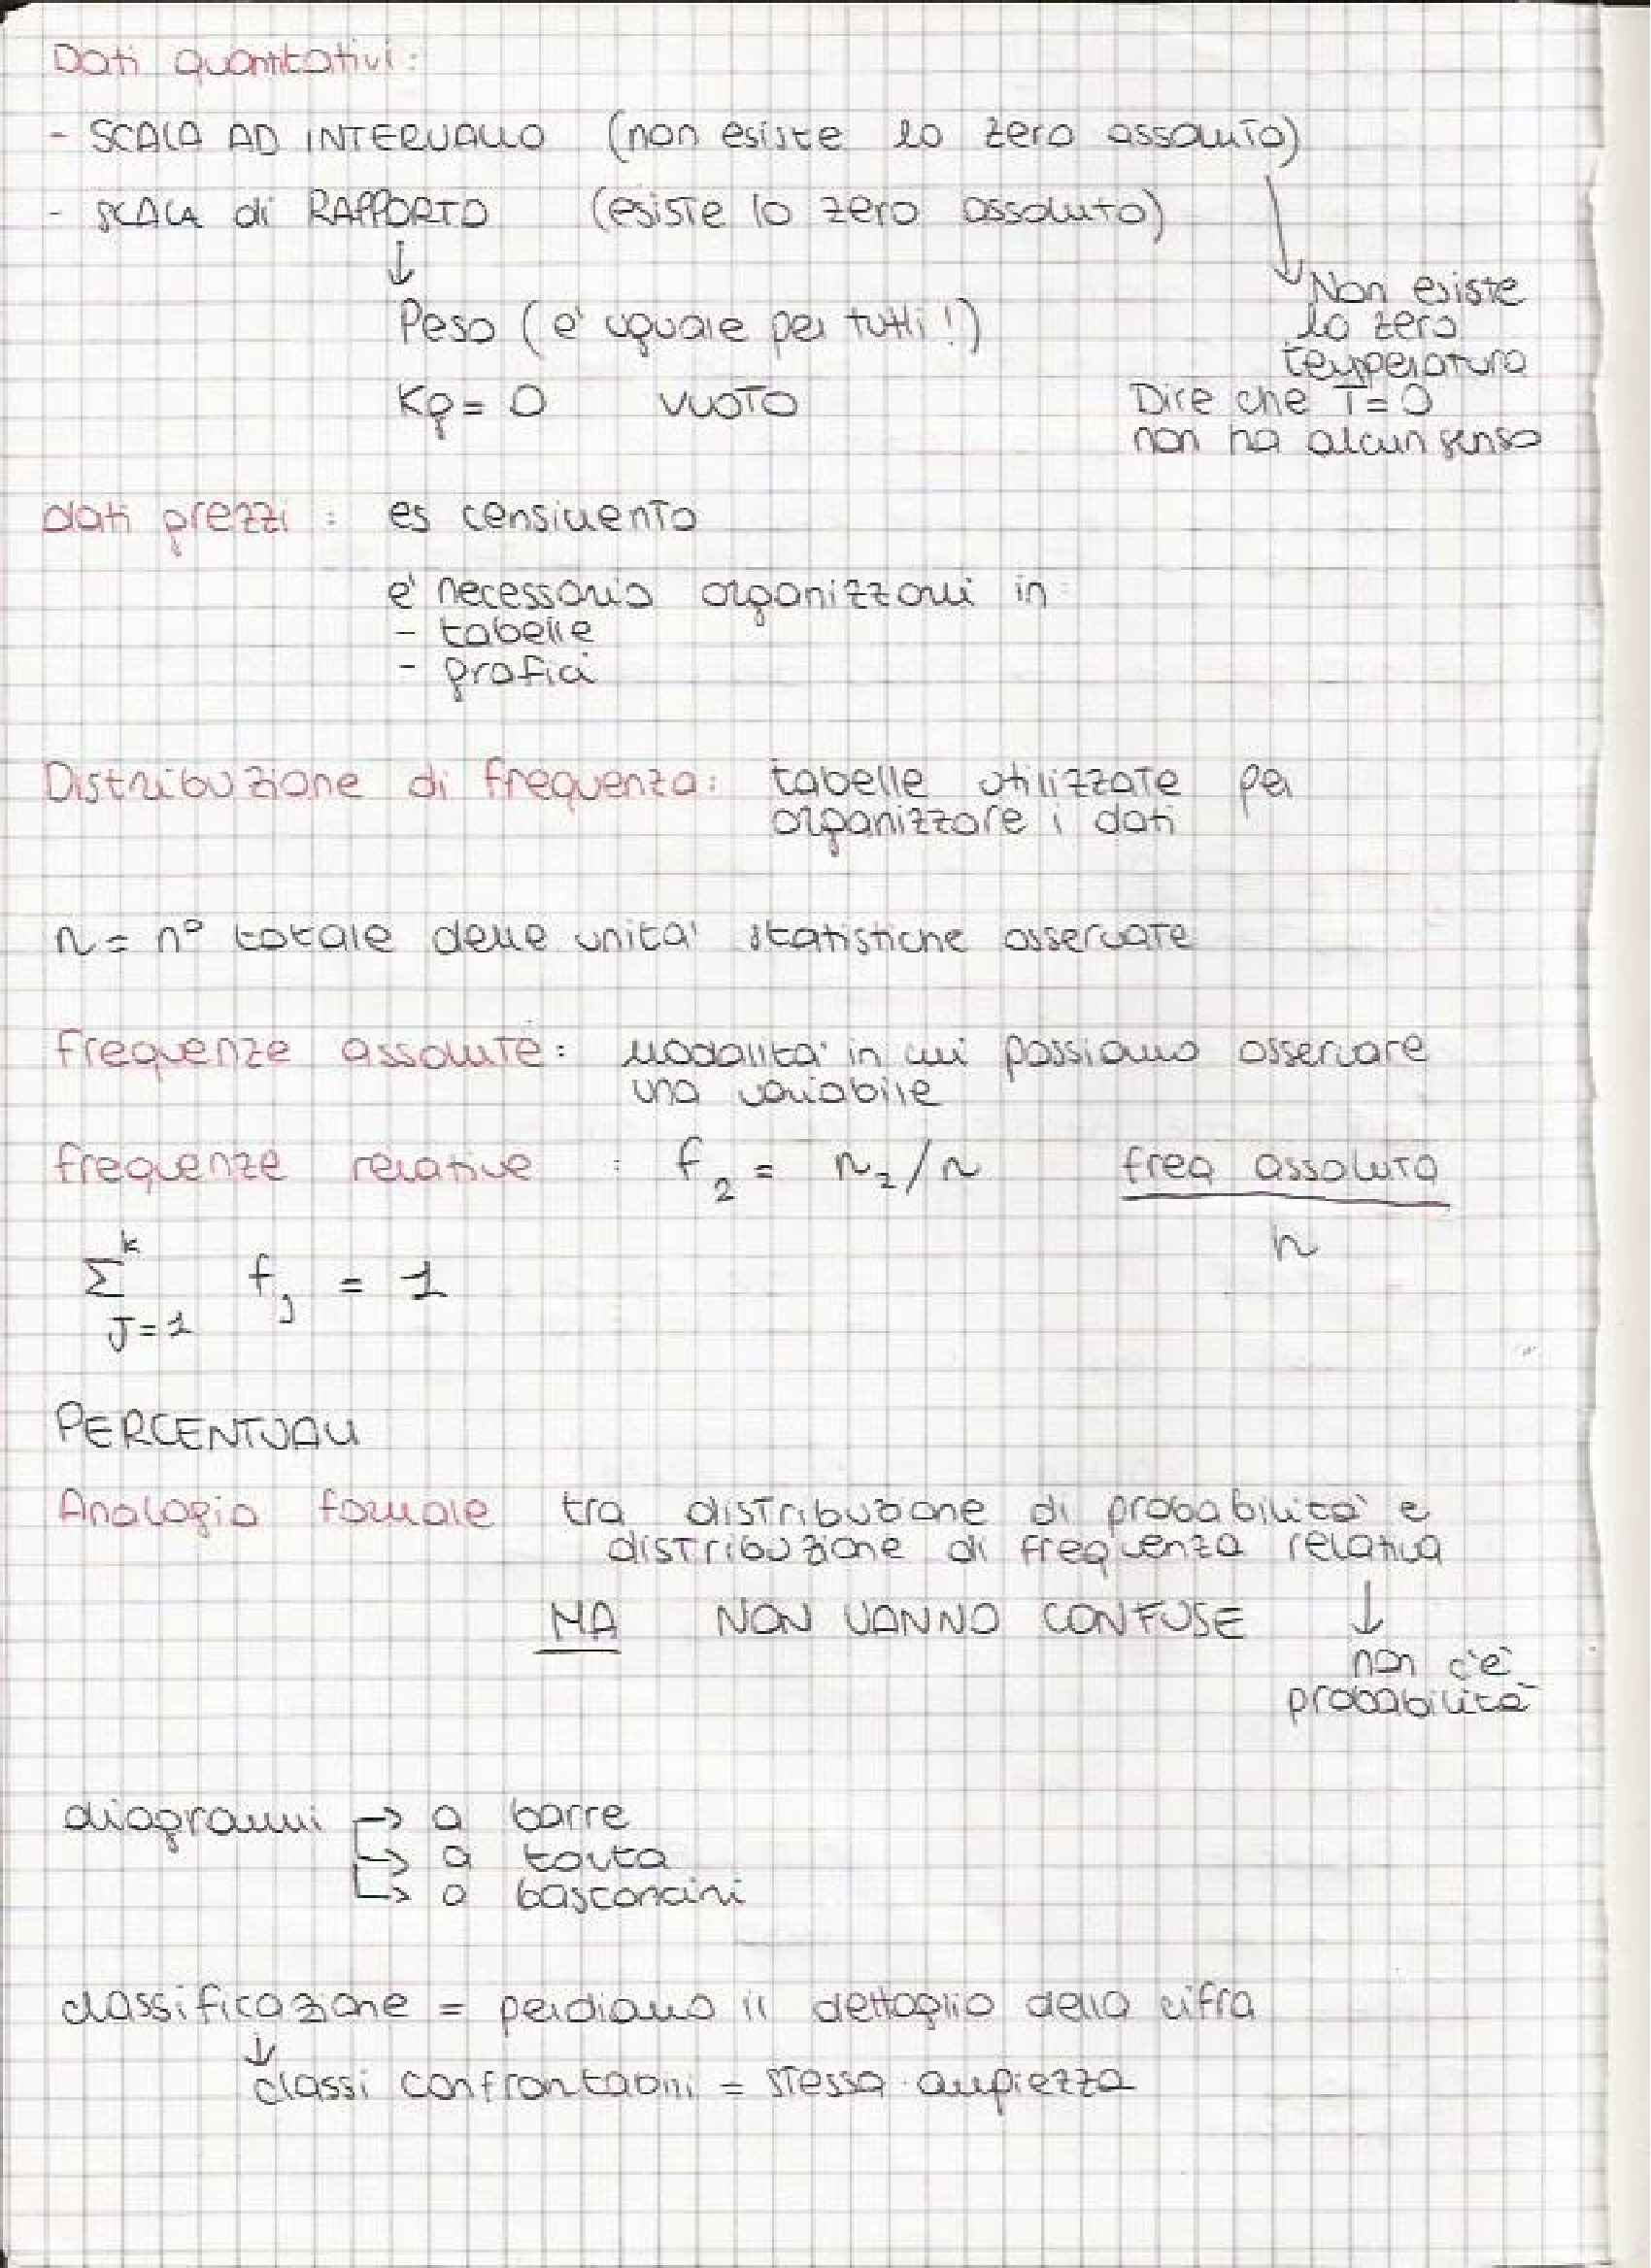 Dati quantitativi:
- SCALA AD INTERVALLO (non esiste lo zero assoluto)
- SCALA di RAPPORTO (esiste lo zero assoluto)
↓
Peso (e' uguale per tutti!)
Kg = 0 VUOTO
Non esiste
lo zero
temperatura
Dire che T=0
non ha alcun senso
dati grezzi : es censimento
e' necessario organizzarli in:
- tabelle
- grafici
Distribuzione di frequenza: tabelle utilizzate per
organizzare i dati
n = n° totale delle unita' statistiche osservate
frequenze assolute: modalita' in cui possiamo osservare
una variabile
frequenze relative : f₂ = n₂/n freq assoluta
n
k
Σ fⱼ = 1
J=1
PERCENTUALI
Analogia formale tra distribuzione di probabilità e
distribuzione di frequenza relativa
MA NON VANNO CONFUSE ↓
non c'è
probabilità
diagrammi → a barre
→ a torta
→ a bastoncini
classificazione = perdiamo il dettaglio della cifra
↓
classi confrontabili = stessa ampiezza